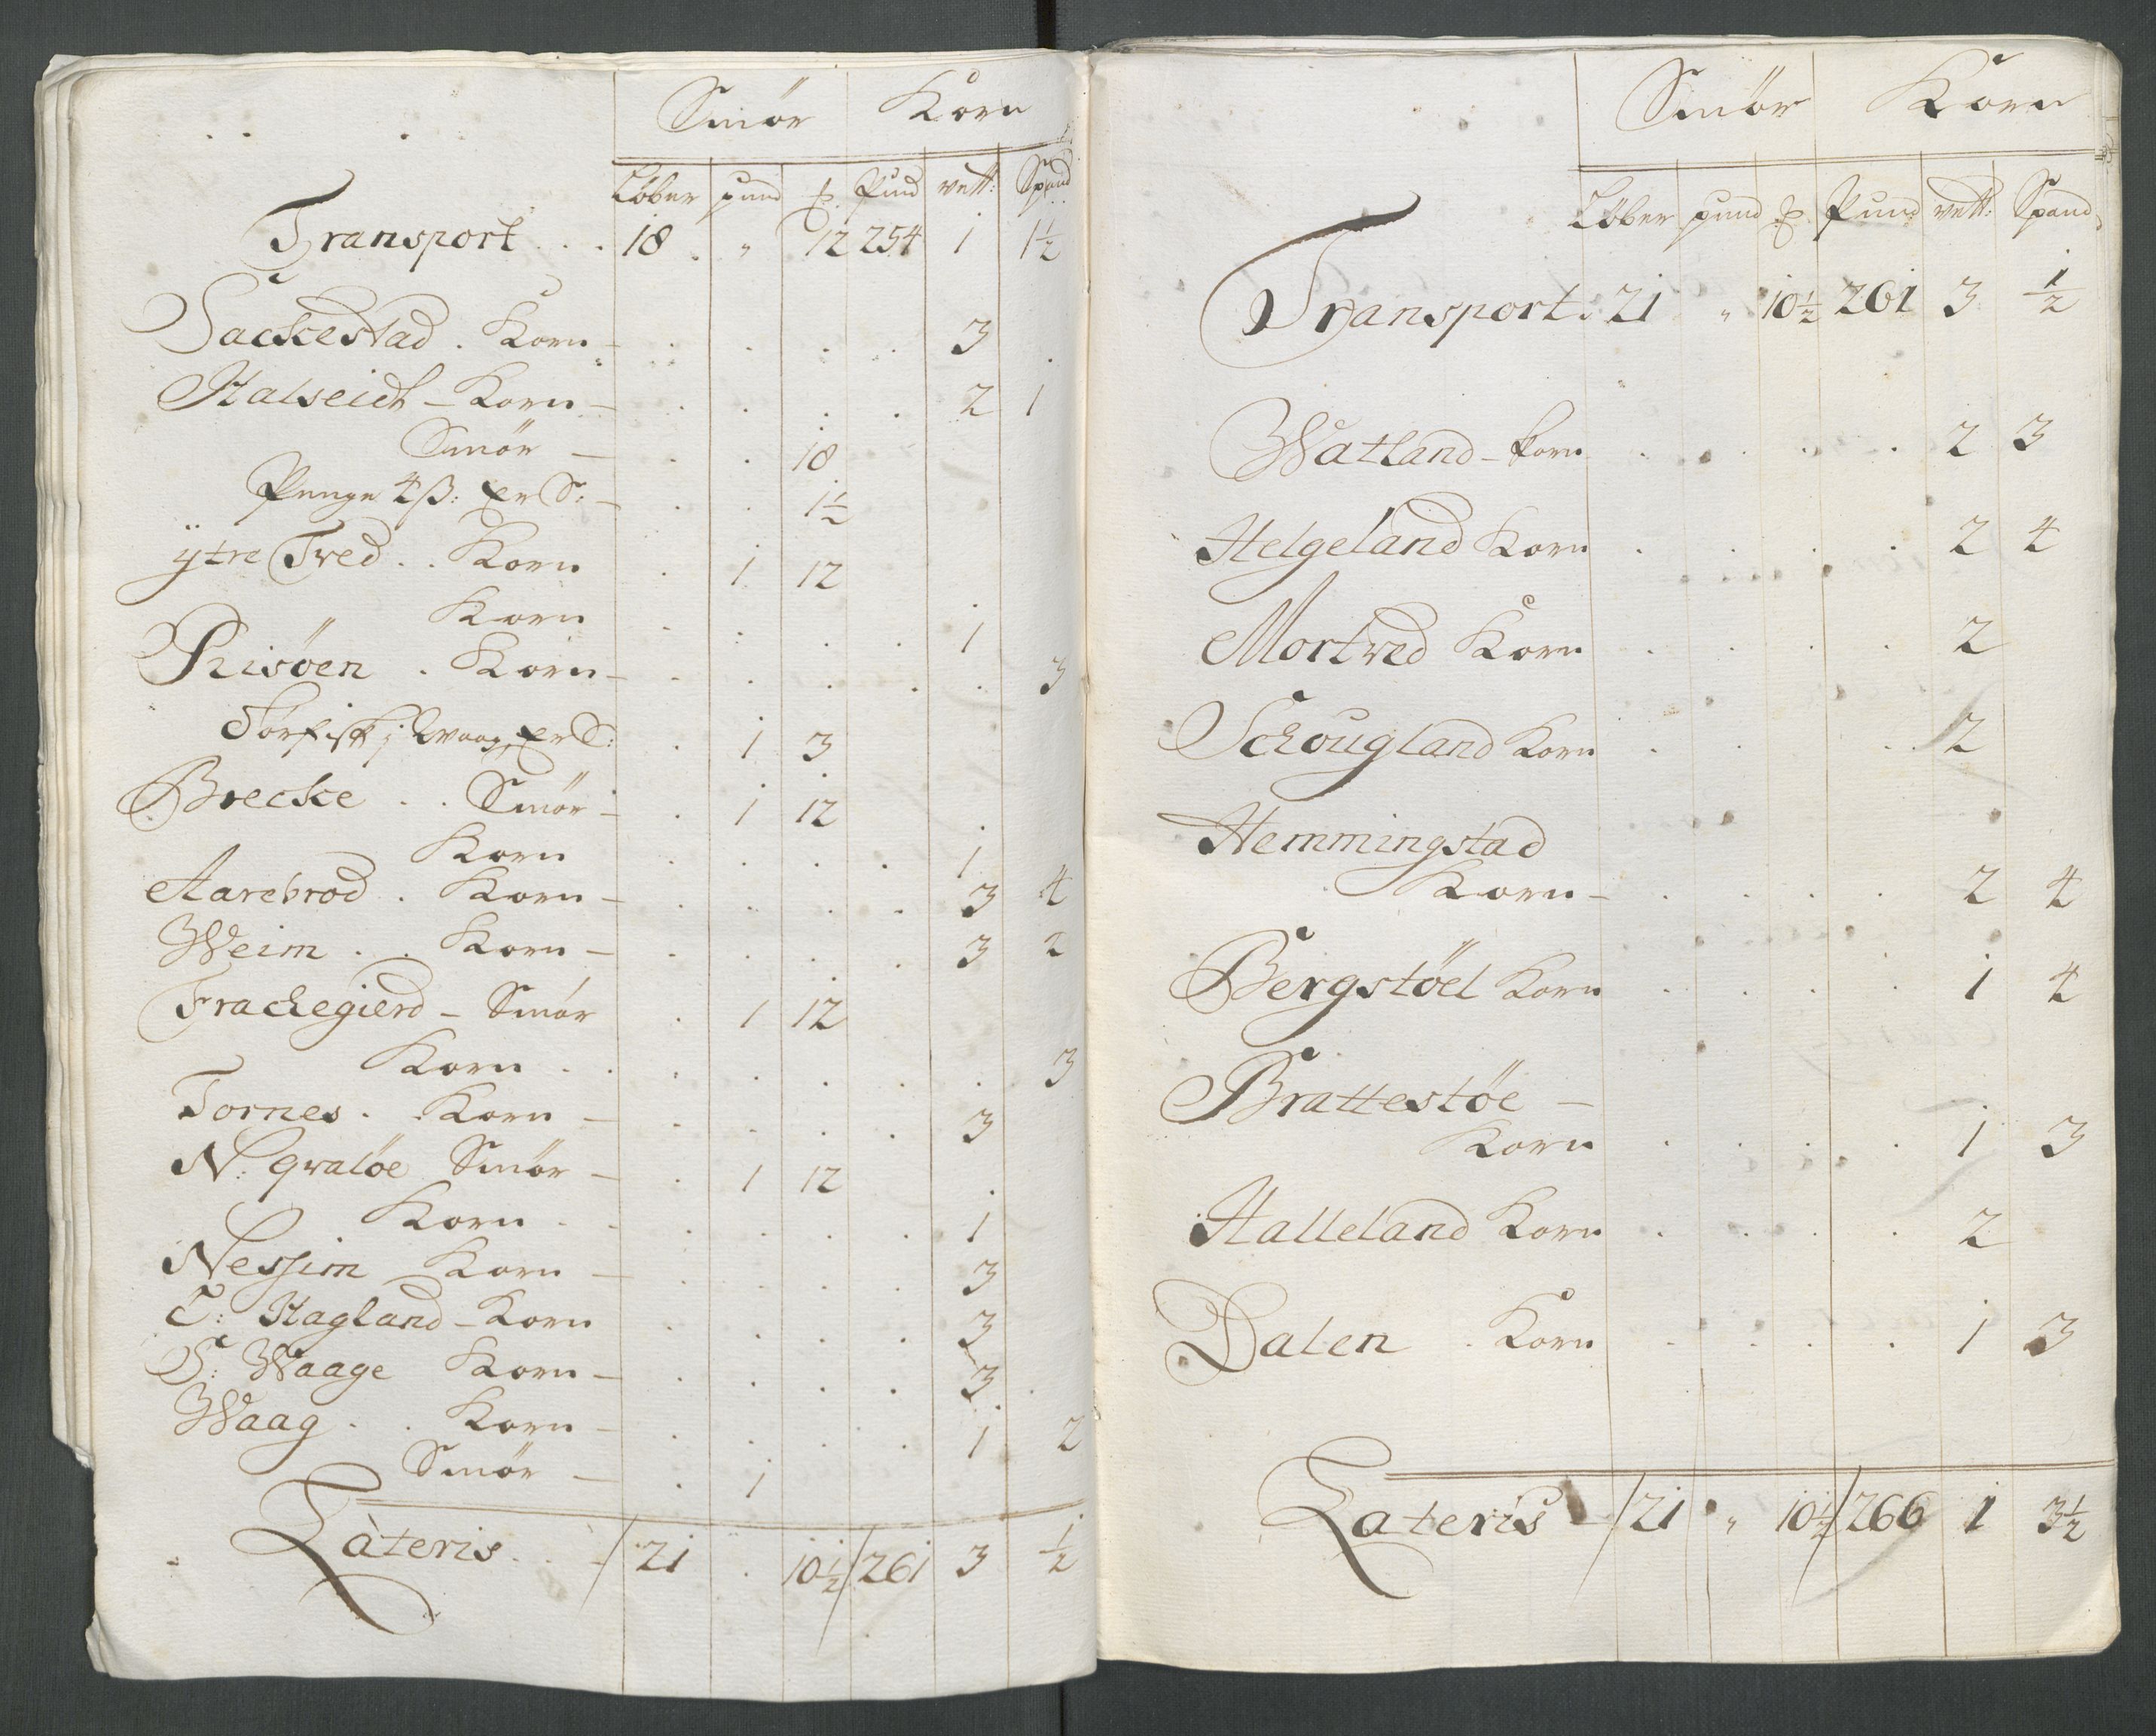 Smör Korn
Löber pund ℔. Pund vett: Spand
Transport . . . 18 . „ 12 254 1 1½
Sackestad . Korn - 3
Halseidt - Korn - 2 1
Smör - 18
Penge 4ß: er S: - 1½
ÿtre Tved . . Korn 1 12
Korn 1
Risöen . Korn - 3
Törfisk j Waag, er S: 1 3
Brecke . . Smör - 1 12
Korn 1
Aarebrod . Korn - 3 4
Weim . . Korn - 3 2
Frackegierd - Smör 1 12
Korn . . 3
Tornes . Korn - 3
N: qvalöe Smör - 1 12
Korn . . 1
Nessim Korn - 3
T: Hagland - Korn 3
S: Waage Korn - 3
Waag . . Korn - 1 2
Smör - 1
Lateris . . 21 . 10½ 261 3 ½
Smör Korn
Löber pund ℔. Pund vett: Spand
Transport: 21 „ 10½ 261 3 ½
Watland - korn 2 3
Helgeland Korn 2 4
Mortved Korn 2
Schougland Korn 2
Hemmingstad
Korn - 2 4
Bergstöel Korn 1 4
Brattestöe -
Korn 1 3
Halleland Korn 2
Dalen . Korn 1 3
Lateris - 21 „ 10½ 266 1 3½